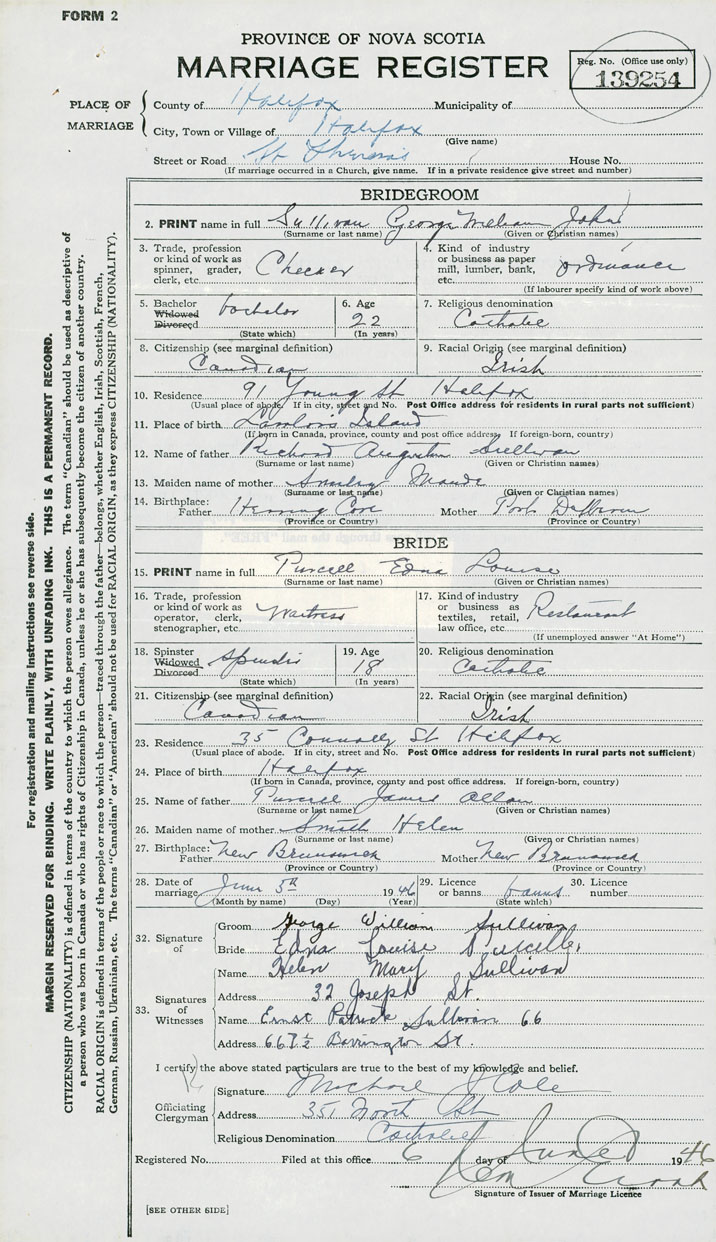 FORM 2
PROVINCE OF NOVA SCOTIA
MARRIAGE REGISTER
Reg. No. (Office use only)
139254
PLACE OF MARRIAGE
County of Halifax Municipality of
City, Town or Village of Halifax
(Give name)
Street or Road St Theresa's House No.
(If marriage occurred in a Church, give name. If in a private residence give street and number)
BRIDEGROOM
2. PRINT name in full Sullivan George William John
(Surname or last name) (Given or Christian names)
3. Trade, profession or kind of work as spinner, grader, clerk, etc. Checker
4. Kind of industry or business as paper mill, lumber, bank, etc. ordinance
(If labourer specify kind of work above)
5. Bachelor Widowed Divorced bachelor
(State which)
6. Age 22
(In years)
7. Religious denomination
Catholic
8. Citizenship (see marginal definition)
Canadian
9. Racial Origin (see marginal definition)
Irish
10. Residence 91 Young St Halifax
(Usual place of abode. If in city, street and No. Post Office address for residents in rural parts not sufficient)
11. Place of birth Island
(If born in Canada, province, county and post office address. If foreign-born, country)
12. Name of father Richard Augustin Sullivan
(Surname or last name) (Given or Christian names)
13. Maiden name of mother Maude
(Surname or last name) (Given or Christian names)
14. Birthplace: Father Herring Cove Mother Port
(Province or Country) (Province or Country)
BRIDE
15. PRINT name in full Purcell Edna Louise
(Surname or last name) (Given or Christian names)
16. Trade, profession or kind of work as operator, clerk, stenographer, etc. Waitress
17. Kind of industry or business as textiles, retail, law office, etc. Restaurant
(If unemployed answer "At Home")
18. Spinster Widowed Divorced
(State which)
19. Age 18
(In years)
20. Religious denomination
Catholic
21. Citizenship (see marginal definition)
Canadian
22. Racial Origin (see marginal definition)
Irish
23. Residence 35 Connolly St Hilifax
(Usual place of abode. If in city, street and No. Post Office address for residents in rural parts not sufficient)
24. Place of birth Halifax
(If born in Canada, province, county and post office address. If foreign-born, country)
25. Name of father Purcell James Allan
(Surname or last name) (Given or Christian names)
26. Maiden name of mother Smith Helen
(Surname or last name) (Given or Christian names)
27. Birthplace: Father New Brunswick Mother New Brunswick
(Province or Country) (Province or Country)
28. Date of marriage June 5th 1946
(Month by name) (Day) (Year)
29. Licence or banns banns
(State which)
30. Licence number
32. Signature of
Groom George William Sullivan
Bride Edna Louise Purcell
33. Signatures of Witnesses
Name Helen Mary Sullivan
Address 32 Joseph St.
Name Ernst Patrick Sullivan 66
Address 667½ Barrington St.
I certify the above stated particulars are true to the best of my knowledge and belief.
Officiating Clergyman
Signature Michael Cole
Address 351 North St
Religious Denomination Catholic
Registered No. Filed at this office 6 day of June 1946
Signature of Issuer of Marriage Licence
[SEE OTHER SIDE]
For registration and mailing instructions see reverse side.
MARGIN RESERVED FOR BINDING. WRITE PLAINLY, WITH UNFADING INK. THIS IS A PERMANENT RECORD.
CITIZENSHIP (NATIONALITY) is defined in terms of the country to which the person owes allegiance. The term "Canadian" should be used as descriptive of
a person who was born in Canada or who has rights of Citizenship in Canada, unless he or she has subsequently become the citizen of another country.
RACIAL ORIGIN is defined in terms of the people or race to which the person—traced through the father—belongs, whether English, Irish, Scottish, French,
German, Russian, Ukrainian, etc. The terms "Canadian" or "American" should not be used for RACIAL ORIGIN, as they express CITIZENSHIP (NATIONALITY).